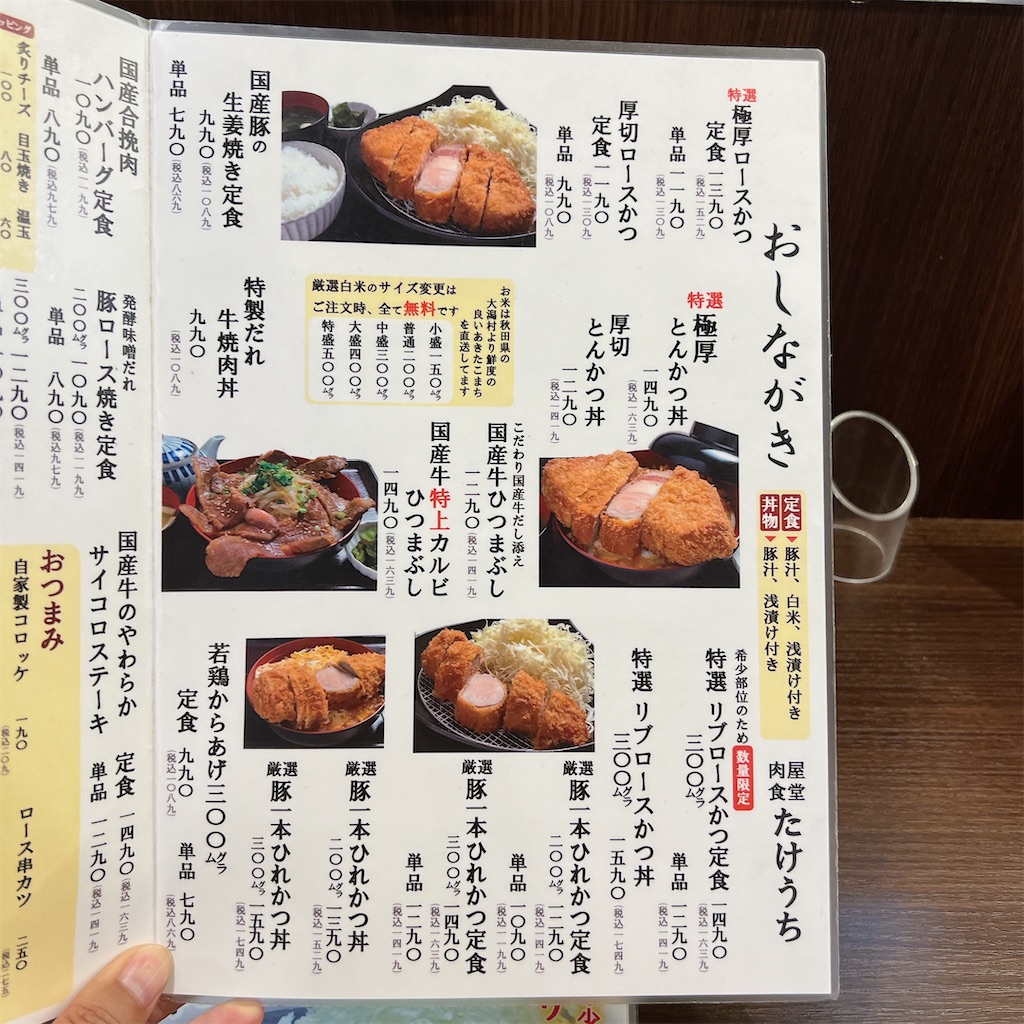 おしながき
定食▼豚汁、白米、浅漬け付き
丼物▼豚汁、浅漬け付き
肉食屋堂たけうち
特選
極厚ロースかつ
定食 一三九〇
(税込一五二九)
単品 一一九〇
(税込一三〇九)
厚切ロースかつ
定食 一一九〇
(税込一三〇九)
単品 九九〇
(税込一〇八九)
国産豚の
生姜焼き定食
九九〇
(税込一〇八九)
単品 七九〇
(税込八六九)
特選
極厚
とんかつ丼
一四九〇
(税込一六三九)
厚切
とんかつ丼
一二九〇
(税込一四一九)
お米は秋田県の
大潟村より鮮度の
良いあきたこまち
を直送してます
厳選白米のサイズ変更は
ご注文時、全て無料です
小盛一五〇㌘
普通二〇〇㌘
中盛三〇〇㌘
大盛四〇〇㌘
特盛五〇〇㌘
特製だれ
牛焼肉丼
九九〇
(税込一〇八九)
こだわり国産牛だし添え
国産牛ひつまぶし
一二九〇(税込一四一九)
国産牛特上カルビ
ひつまぶし
一四九〇(税込一六三九)
希少部位のため
数量限定
特選 リブロースかつ定食
三〇〇㌘ 一四九〇
(税込一六三九)
単品 一二九〇
(税込一四一九)
特選 リブロースかつ丼
三〇〇㌘ 一五九〇
(税込一七四九)
厳選
豚一本ひれかつ定食
二〇〇㌘ 一二九〇
(税込一四一九)
単品 一〇九〇
(税込一一九九)
厳選
豚一本ひれかつ定食
三〇〇㌘ 一四九〇
(税込一六三九)
単品 一二九〇
(税込一四一九)
厳選
豚一本ひれかつ丼
二〇〇㌘ 一三九〇
(税込一五二九)
厳選
豚一本ひれかつ丼
三〇〇㌘ 一五九〇
(税込一七四九)
若鶏からあげ三〇〇㌘
定食 九九〇
(税込一〇八九)
単品 七九〇
(税込八六九)
国産合挽肉
ハンバーグ定食
一〇九〇(税込一一九九)
単品 八九〇(税込九七九)
ッピング
炙りチーズ 目玉焼き 温玉
一〇〇 八〇 六〇
発酵味噌だれ
豚ロース焼き定食
二〇〇㌘ 一〇九〇(税込一一九九)
単品 八九〇(税込九七九)
三〇〇㌘ 一二九〇(税込一四一九)
国産牛のやわらか
サイコロステーキ
定食 一四九〇(税込一六三九)
単品 一二九〇(税込一四一九)
おつまみ
自家製コロッケ 一九〇
(税込二〇九)
ロース串カツ 二五〇
(税込二七五)